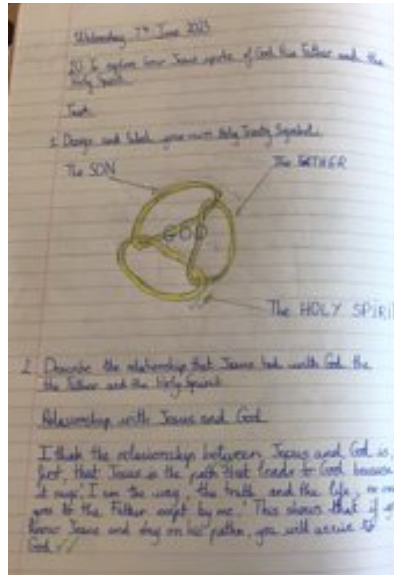 Wednesday 7th June 2023
LO: To explore how Jesus spoke of God the Father and the
Holy Spirit.
Task
1. Design and label your own Holy Trinity Symbol.
The SON
The FATHER
GOD
The HOLY SPIRI
2. Describe the relationship that Jesus had with God the
the Father and the Holy Spirit
Relationship with Jesus and God
I think the relationship between Jesus and God is,
first, that Jesus is the path that leads to God because
it says 'I am the way, the truth and the life, no one
to the Father except by me.' This shows that if
know Jesus and stay on his path, you will arrive to
God.